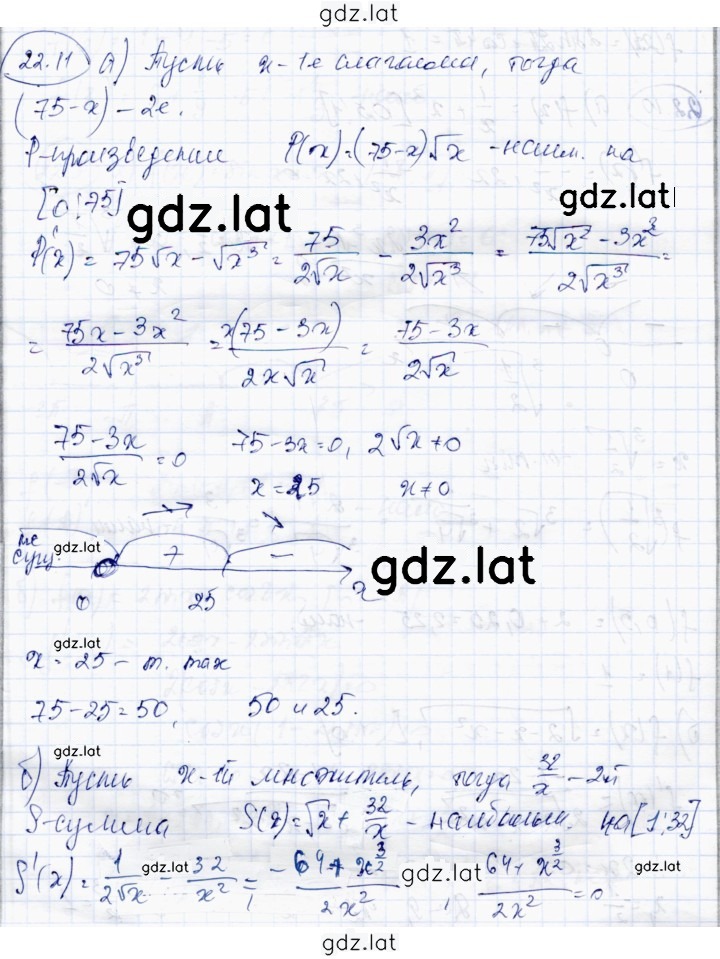 gdz.lat
22.11 а) Пусть x-1е слагаемое, тогда
(75-x) - 2е.
P-произведение P(x)=(75-x)√x - наим. на
[0;75]
gdz.lat
P'(x) = 75√x - √x³ = 75/(2√x) - 3x²/(2√x³) = (75√x² - 3x²)/(2√x³) =
= (75x - 3x²)/(2√x³) = x(75 - 3x)/(2x√x) = (75 - 3x)/(2√x)
(75-3x)/(2√x) = 0 75-3x=0, 2√x≠0
x=25 x≠0
не
сущ. gdz.lat + -
gdz.lat
0 25 x
gdz.lat
x = 25 - т. max
75-25=50, 50 и 25.
gdz.lat
б) Пусть x-1й множитель, тогда 32/x - 2й
S-сумма S(x)=√x + 32/x - наибольш. на [1;32]
S'(x) = 1/(2√x) - 32/x² = (-64+x^(3/2))/(2x²), (64+x^(3/2))/(2x²) = 0
gdz.lat gdz.lat gdz.lat
gdz.lat